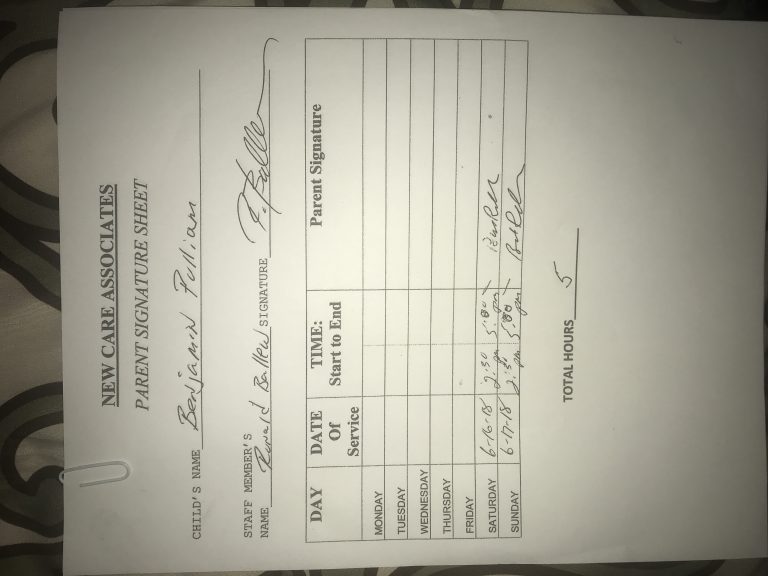 NEW CARE ASSOCIATES
PARENT SIGNATURE SHEET
CHILD'S NAME Benjamin Pulliam
STAFF MEMBER'S
NAME Ronald Ballew SIGNATURE R. Ballew
DAY DATE Of Service TIME: Start to End Parent Signature
MONDAY
TUESDAY
WEDNESDAY
THURSDAY
FRIDAY
SATURDAY 6-16-18 2:30 pm 5:00 pm
SUNDAY 6-17-18 2:30 pm 5:00 pm
TOTAL HOURS 5